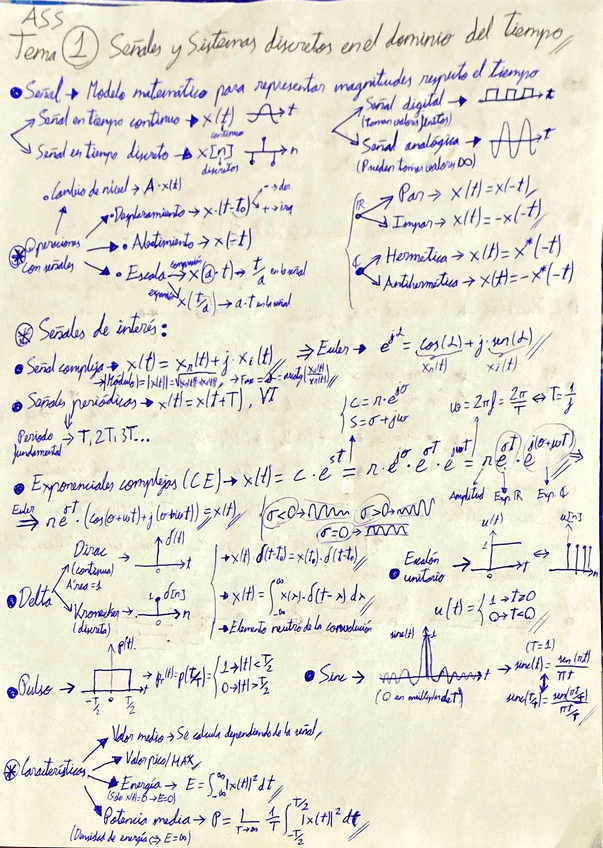 ASS
Tema 1 Señales y Sistemas discretos en el dominio del tiempo
Señal → Modelo matemático para representar magnitudes respecto el tiempo
Señal en tiempo continuo → x(t) t
continuo
Señal en tiempo discreto → x[n] n
discretos
Señal digital → t
(toman valores finitos)
Señal analógica → t
(Pueden tomar valores ∞)
Operaciones con señales
Cambio de nivel → A·x(t)
Desplazamiento → x·(t-t₀) - → der + → izq
Abatimiento → x(-t)
Escala → x(a·t) → t/a en la señal
compresión
expansión x(t/a) → a·t en la señal
ℝ Par → x(t)=x(-t)
Impar → x(t)=-x(-t)
ℂ Hermética → x(t)=x*(-t)
Antihermética → x(t)=-x*(-t)
Señales de interés:
Señal compleja → x(t)=xᵣ(t)+j·xᵢ(t) ⇒ Euler → e^jα = cos(α)+j·sen(α)
xᵣ(t) xᵢ(t)
Señales periódicas → x(t)=x(t+T), ∀T
Periodo fundamental → T, 2T, 3T...
C=r·e^jσ
S=σ+jω
ω=2πf=2π/T ⇔ T=1/f
Exponenciales complejas (CE) → x(t)=C·e^st = r·e^jσ·e^σt·e^jωt = r e^σt·e^j(σ+ωt) ⇒
Amplitud Exp. ℝ Exp. ℂ
Euler ⇒ r e^σt·(cos(σ+ωt)+j(σ+ωt)) = x(t) σ<0 → σ>0 →
σ=0 →
Delta
Dirac (continua) → δ(t) 0 t
Área=1
Kronecker (discreta) → 1 δ[n] 0 n
→ x(t)·δ(t-t₀)=x(t₀)·δ(t-t₀)
→ x(t)=∫_-∞^∞ x(λ)·δ(t-λ)dλ
→ Elemento neutro de la convolución
Escalón unitario → u(t) 1 0 t ⇔ u[n] n
u(t)={1→T≥0
0→T<0
Pulso → p(t) -T/2 0 T/2 t → p_T(t)=p(t/T)={1→|t|<T/2
0→|t|>T/2
Sinc → sinc(t) t → sinc(t)=sen(πt)/πt
(T=1)
(0 en múltiplos de T)
sinc(t/T)=sen(πt/T)/πt/T
Características
Valor medio → Se calcula dependiendo de la señal
Valor pico/MAX
Energía → E=∫_-∞^∞|x(t)|²dt
(Solo x(t)=0→E=0)
Potencia media → P= L T→∞ 1/T ∫_-T/2^T/2 |x(t)|²dt
(Densidad de energía ⇔ E=∞)